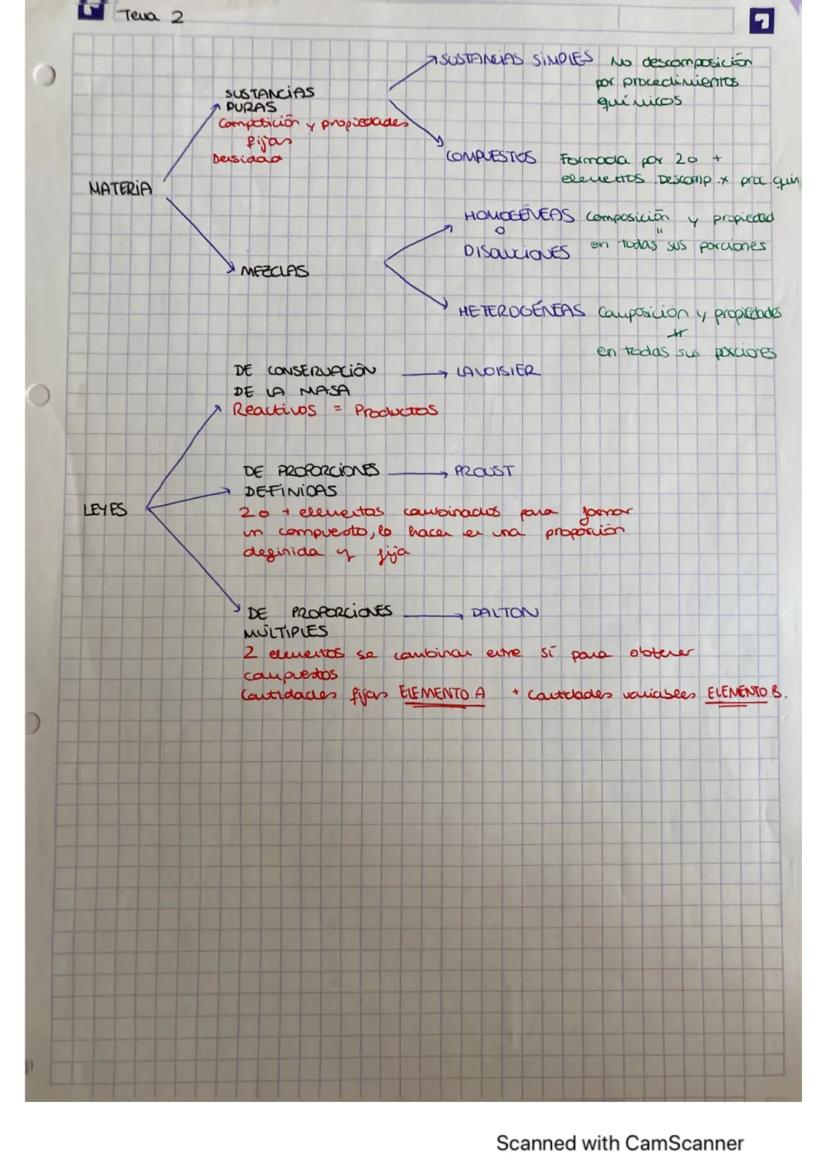 Tema 2
SUSTANCIAS SIMPLES No descomposición
por procedimientos
químicos
SUSTANCIAS
PURAS
Composición y propiedades
fijas
Densidad
COMPUESTOS Formada por 2 o +
elementos. Descomp. x proc quim
MATERIA
HOMOGÉNEAS composición y propiedad
o "
DISOLUCIONES en todas sus porciones
MEZCLAS
HETEROGÉNEAS Composición y propiedades
≠
en todas sus porciones
DE CONSERVACIÓN → LAVOISIER
DE LA MASA
Reactivos = Productos
DE PROPORCIONES → PROUST
DEFINIDAS
LEYES
2 o + elementos combinados para formar
un compuesto, lo hacen en una proporción
definida y fija
DE PROPORCIONES → DALTON
MÚLTIPLES
2 elementos se combinan entre sí para obtener
compuestos
Cantidades fijas ELEMENTO A + cantidades variables ELEMENTO B.
Scanned with CamScanner